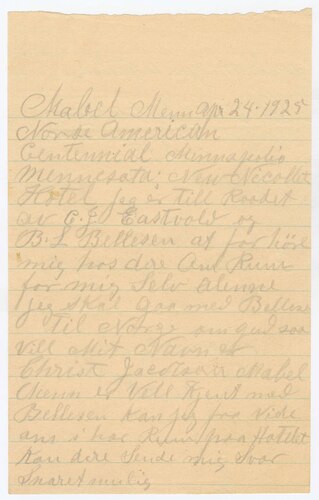 Mabel Minn Apr 24-1925
Norse American
Centennial Minnapolis
Minnesota New Nicollet
Hotel Jeg er till Raadet
av C. E Eastvold og
B. L Bellesen at for høre
mig hos dere Om Rum
for mig Selv alenne
jeg skal gaa med Bellesen
til Norge om gud saa
vill Mit Navn er
Christ Jacobson Mabel
Minn er Vell Kjent med
Bellesen Kan jeg faa Vide
om i har Rum paa Hotelet
Kan dere Sende mig Svar
snarest mulig